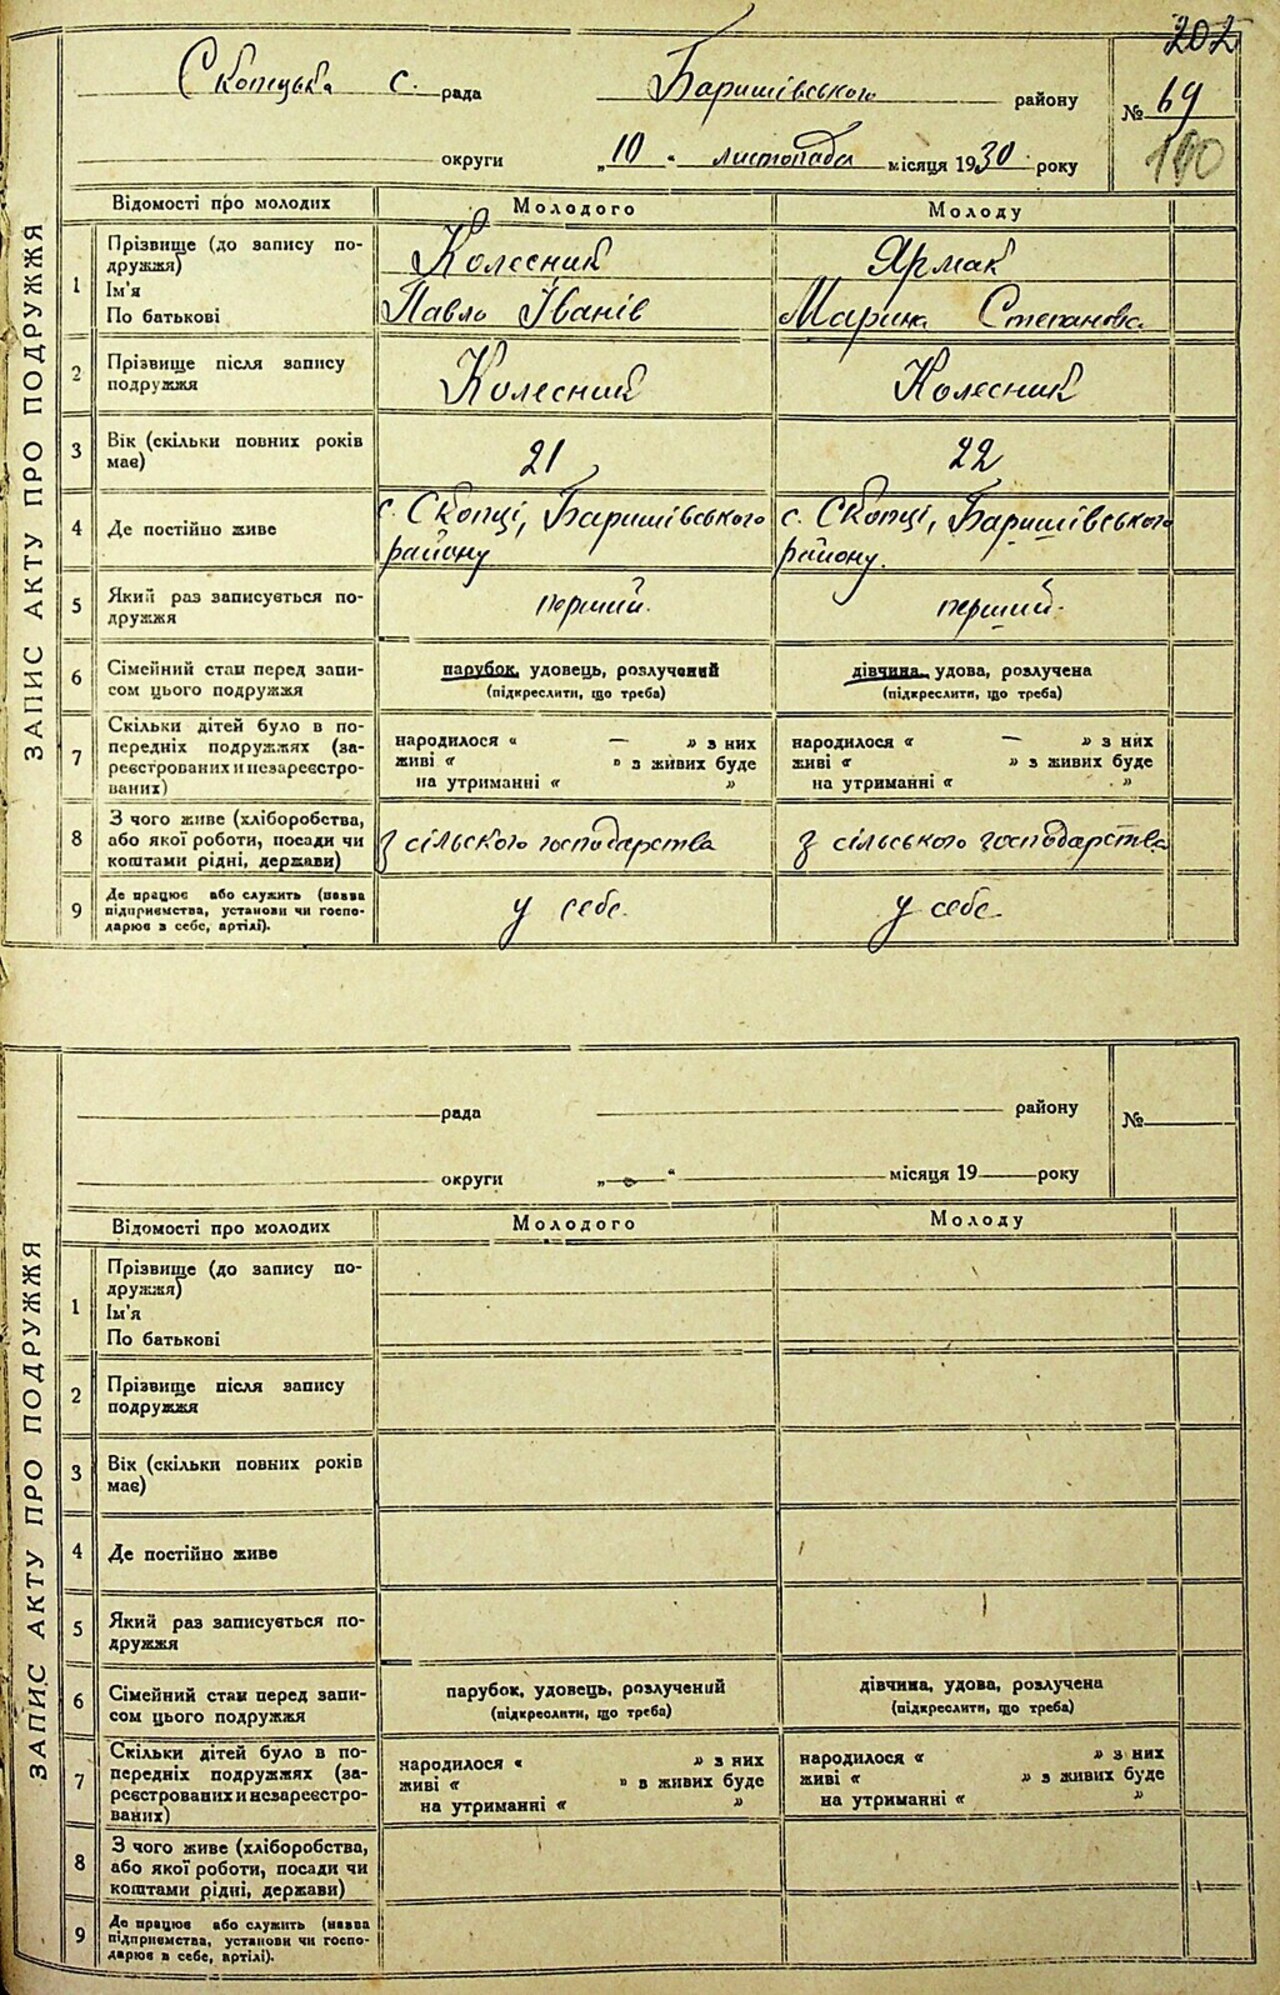 202
Скопецька с. рада Баришівського району № 69
округи „10" листопада місяця 1930 року
190
ЗАПИС АКТУ ПРО ПОДРУЖЖЯ
Відомості про молодих Молодого Молоду
1 Прізвище (до запису по-
дружжя) Колесник Ярмак
Ім'я
По батькові Павло Іванів Марина Степановна
2 Прізвище після запису
подружжя Колесник Колесник
3 Вік (скільки повних років
має) 21 22
4 Де постійно живе с. Скопці, Баришівського с. Скопці, Баришівського
району району.
5 Який раз записується по-
дружжя перший. перший.
6 Сімейний стан перед запи-
сом цього подружжя парубок, удовець, розлучений дівчина, удова, розлучена
(підкреслити, що треба) (підкреслити, що треба)
7 Скільки дітей було в по-
передніх подружжях (за-
реєстрованих и незареєстро-
ваних)
народилося « — » з них народилося « — » з них
живі « » з живих буде живі « » з живих буде
на утриманні « » на утриманні « »
8 З чого живе (хліборобства,
або якої роботи, посади чи
коштами рідні, держави) з сільского господарства з сільського господарства
9 Де працює або служить (назва
підприємства, установи чи госпо-
дарює в себе, артілі). у себе. у себе.
ЗАПИС АКТУ ПРО ПОДРУЖЖЯ
рада району №
округи „ " місяця 19 року
Відомості про молодих Молодого Молоду
1 Прізвище (до запису по-
дружжя)
Ім'я
По батькові
2 Прізвище після запису
подружжя
3 Вік (скільки повних років
має)
4 Де постійно живе
5 Який раз записується по-
дружжя
6 Сімейний стан перед запи-
сом цього подружжя парубок, удовець, розлучений дівчина, удова, розлучена
(підкреслити, що треба) (підкреслити, що треба)
7 Скільки дітей було в по-
передніх подружжях (за-
реєстрованих и незареєстро-
ваних)
народилося « » з них народилося « » з них
живі « » в живих буде живі « » з живих буде
на утриманні « » на утриманні « »
8 З чого живе (хліборобства,
або якої роботи, посади чи
коштами рідні, держави)
9 Де працює або служить (назва
підприємства, установи чи госпо-
дарює в себе, артілі).